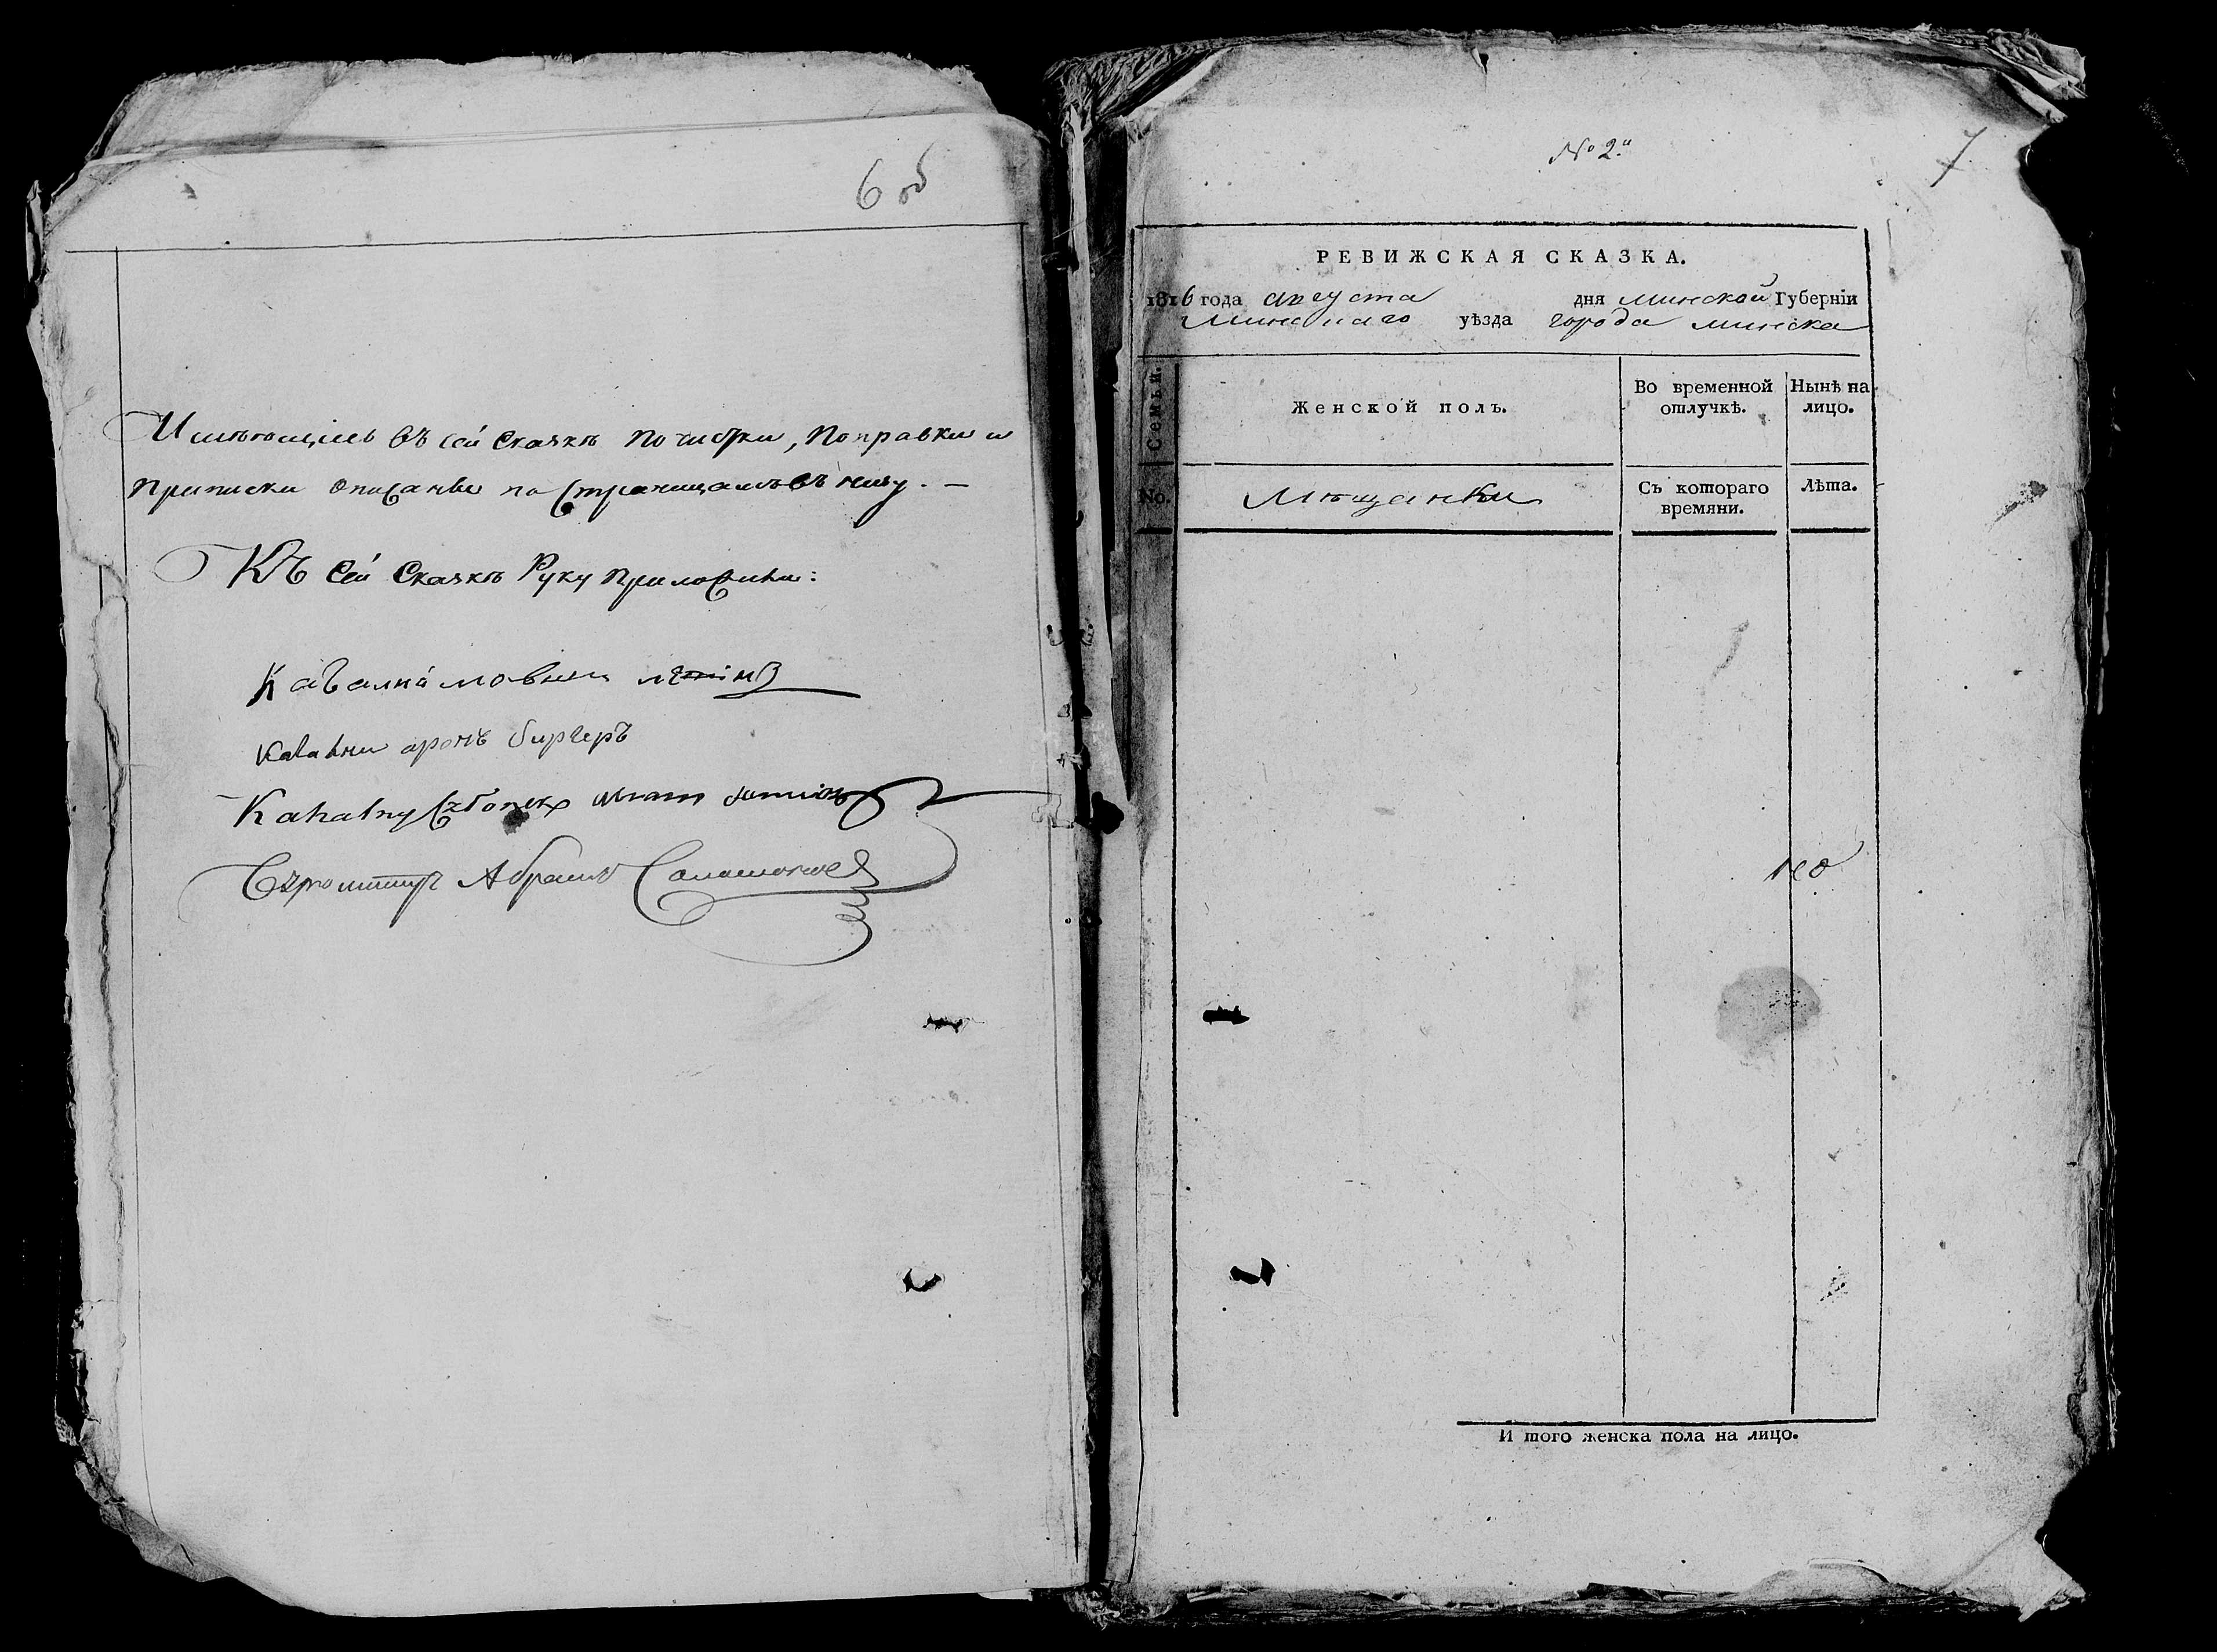 6 об
Имѣющіесь въ сей Сказкѣ почистки, поправки и
приписки описаны по страницамъ въ низу. —
Къ сей Сказкѣ Руку приложили:
Кагалны аронъ биргеръ
Kahalny Członek
Абрамъ Соломонов
No 2.й
7
РЕВИЖСКАЯ СКАЗКА.
1816 года августа дня минской Губерніи
Минскаго уѣзда города минска
Семьи. Женской полъ. Во временной отлучкѣ. Нынѣ на лицо.
No. Мѣщанки Съ котораго времяни. Лѣта.
И того женска пола на лицо.